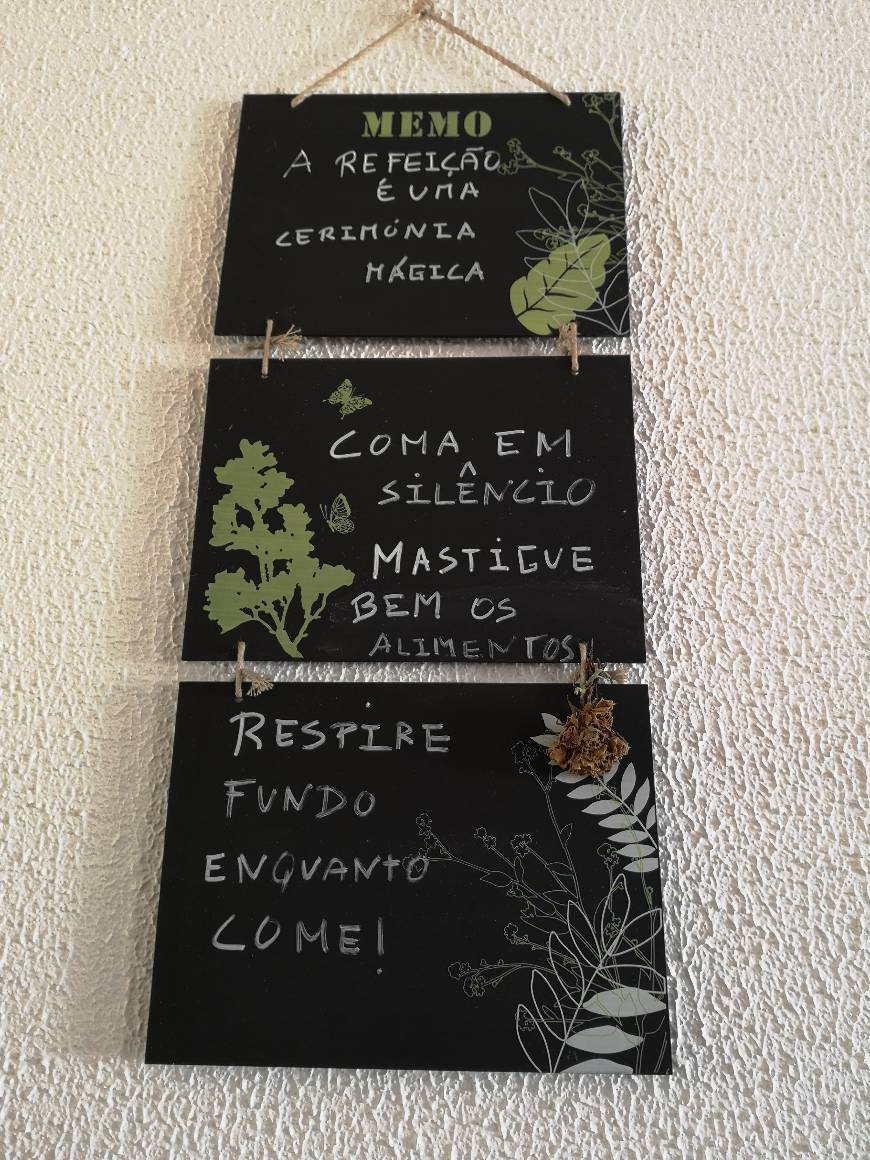 MEMO
A REFEIÇÃO
É UMA
CERIMÓNIA
MÁGICA
COMA EM
SILÊNCIO
MASTIGUE
BEM OS
ALIMENTOS
RESPIRE
FUNDO
ENQUANTO
COME!